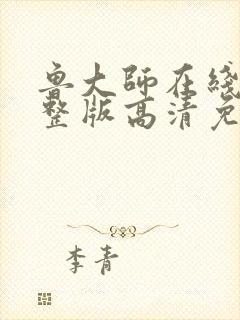 鲁大师在线
整版高清免
李青